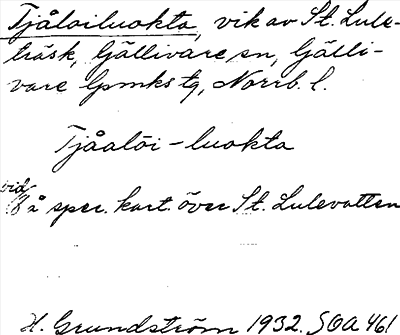 Tjåloiluokta, vik av St. Lule-
träsk, Gällivare sn, Gälli-
vare lpmks tg, Norrb. l.
Tjåalōi-luokta
vid
å sper. kart. över St. Lulevatten
H. Grundström 1932. SOA 461